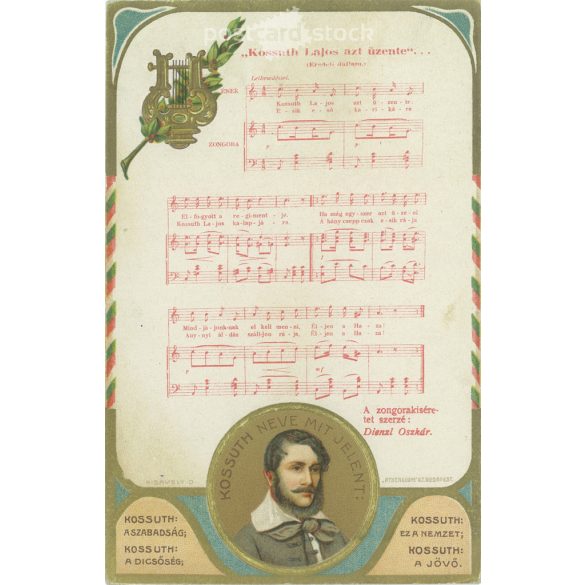 postcard stock
„Kossuth Lajos azt üzente“...
(Eredeti dallam.)
Lelkesedéssel.
ÉNEK
Kossuth La - jos azt ü - zen - te
E - sik e - ső ka - ri - ká - ra
ZONGORA
p
f
El - fo - gyott a re - gi - ment - je. Ha még egy - szer azt ü - ze - ni
Kossuth La - jos ka - lap - já - ra. A hány csepp esik e - sik rá - ja
Mind - já - junk - nak el kell men - ni, Él - jen a Ha - za!
Any - nyi ál - dás szálljon rá - ja, Él - jen a Ha - za!
A zongorakisére-
tet szerzé:
Dienzl Oszkár.
KOSSUTH NEVE MIT JELENT:
KISMÉLY.D.
„ATHENAEUM“ RT. BUDAPEST.
KOSSUTH:
A SZABADSÁG;
KOSSUTH:
A DICSŐSÉG;
KOSSUTH:
EZ A NEMZET;
KOSSUTH:
A JÖVŐ.